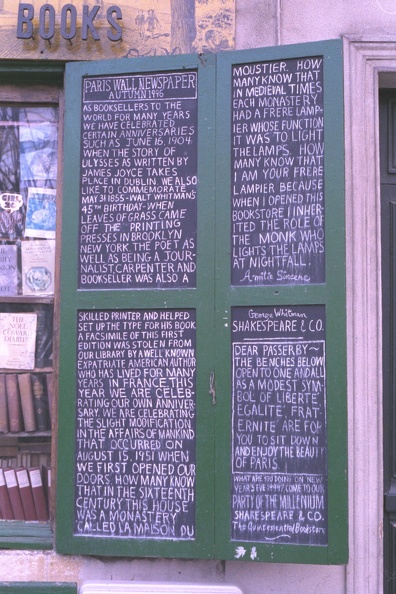 BOOKS
PARIS WALL NEWSPAPER
AUTUMN 1996
AS BOOKSELLERS TO THE
WORLD FOR MANY YEARS
WE HAVE CELEBRATED
CERTAIN ANNIVERSARIES
SUCH AS JUNE 16, 1904
WHEN THE STORY OF
ULYSSES AS WRITTEN BY
JAMES JOYCE TAKES
PLACE IN DUBLIN. WE ALSO
LIKE TO COMMEMORATE
MAY 31 1855-WALT WHITMANS
45TH BIRTHDAY-WHEN
LEAVES OF GRASS CAME
OFF THE PRINTING
PRESSES IN BROOKLYN
NEW YORK. THE POET AS
WELL AS BEING A JOUR-
NALIST, CARPENTER AND
BOOKSELLER WAS ALSO A
SKILLED PRINTER AND HELPED
SET UP THE TYPE FOR HIS BOOK
A FACSIMILE OF THIS FIRST
EDITION WAS STOLEN FROM
OUR LIBRARY BY A WELL KNOWN
EXPATRIATE AMERICAN AUTHOR
WHO HAS LIVED FOR MANY
YEARS IN FRANCE. THIS
YEAR WE ARE CELEB-
RATING OUR OWN ANNIVER-
SARY. WE ARE CELEBRATING
THE SLIGHT MODIFICATION
IN THE AFFAIRS OF MANKIND
THAT OCCURRED ON
AUGUST 15, 1951 WHEN
WE FIRST OPENED OUR
DOORS. HOW MANY KNOW
THAT IN THE SIXTEENTH
CENTURY THIS HOUSE
WAS A MONASTERY
CALLED LA MAISON DU
MOUSTIER. HOW
MANY KNOW THAT
IN MEDIEVAL TIMES
EACH MONASTERY
HAD A FRERE LAMP-
IER WHOSE FUNCTION
IT WAS TO LIGHT
THE LAMPS. HOW
MANY KNOW THAT
I AM YOUR FRERE
LAMPIER BECAUSE
WHEN I OPENED THIS
BOOKSTORE I INHER-
ITED THE ROLE OF
THE MONK WHO
LIGHTS THE LAMPS
AT NIGHTFALL.
Amitié Sincère
George Whitman
SHAKESPEARE & CO.
DEAR PASSERBY~
THE BENCHES BELOW
OPEN TO ONE AND ALL
AS A MODEST SYM-
BOL OF LIBERTE,
EGALITE, FRAT-
ERNITE ARE FOR
YOU TO SIT DOWN
AND ENJOY THE BEAUTY
OF PARIS.
WHAT ARE YOU DOING ON NEW
YEARS EVE 1999? COME TO OUR
PARTY OF THE MILLENIUM
SHAKESPEARE & CO.
The Quintessential Bookstore